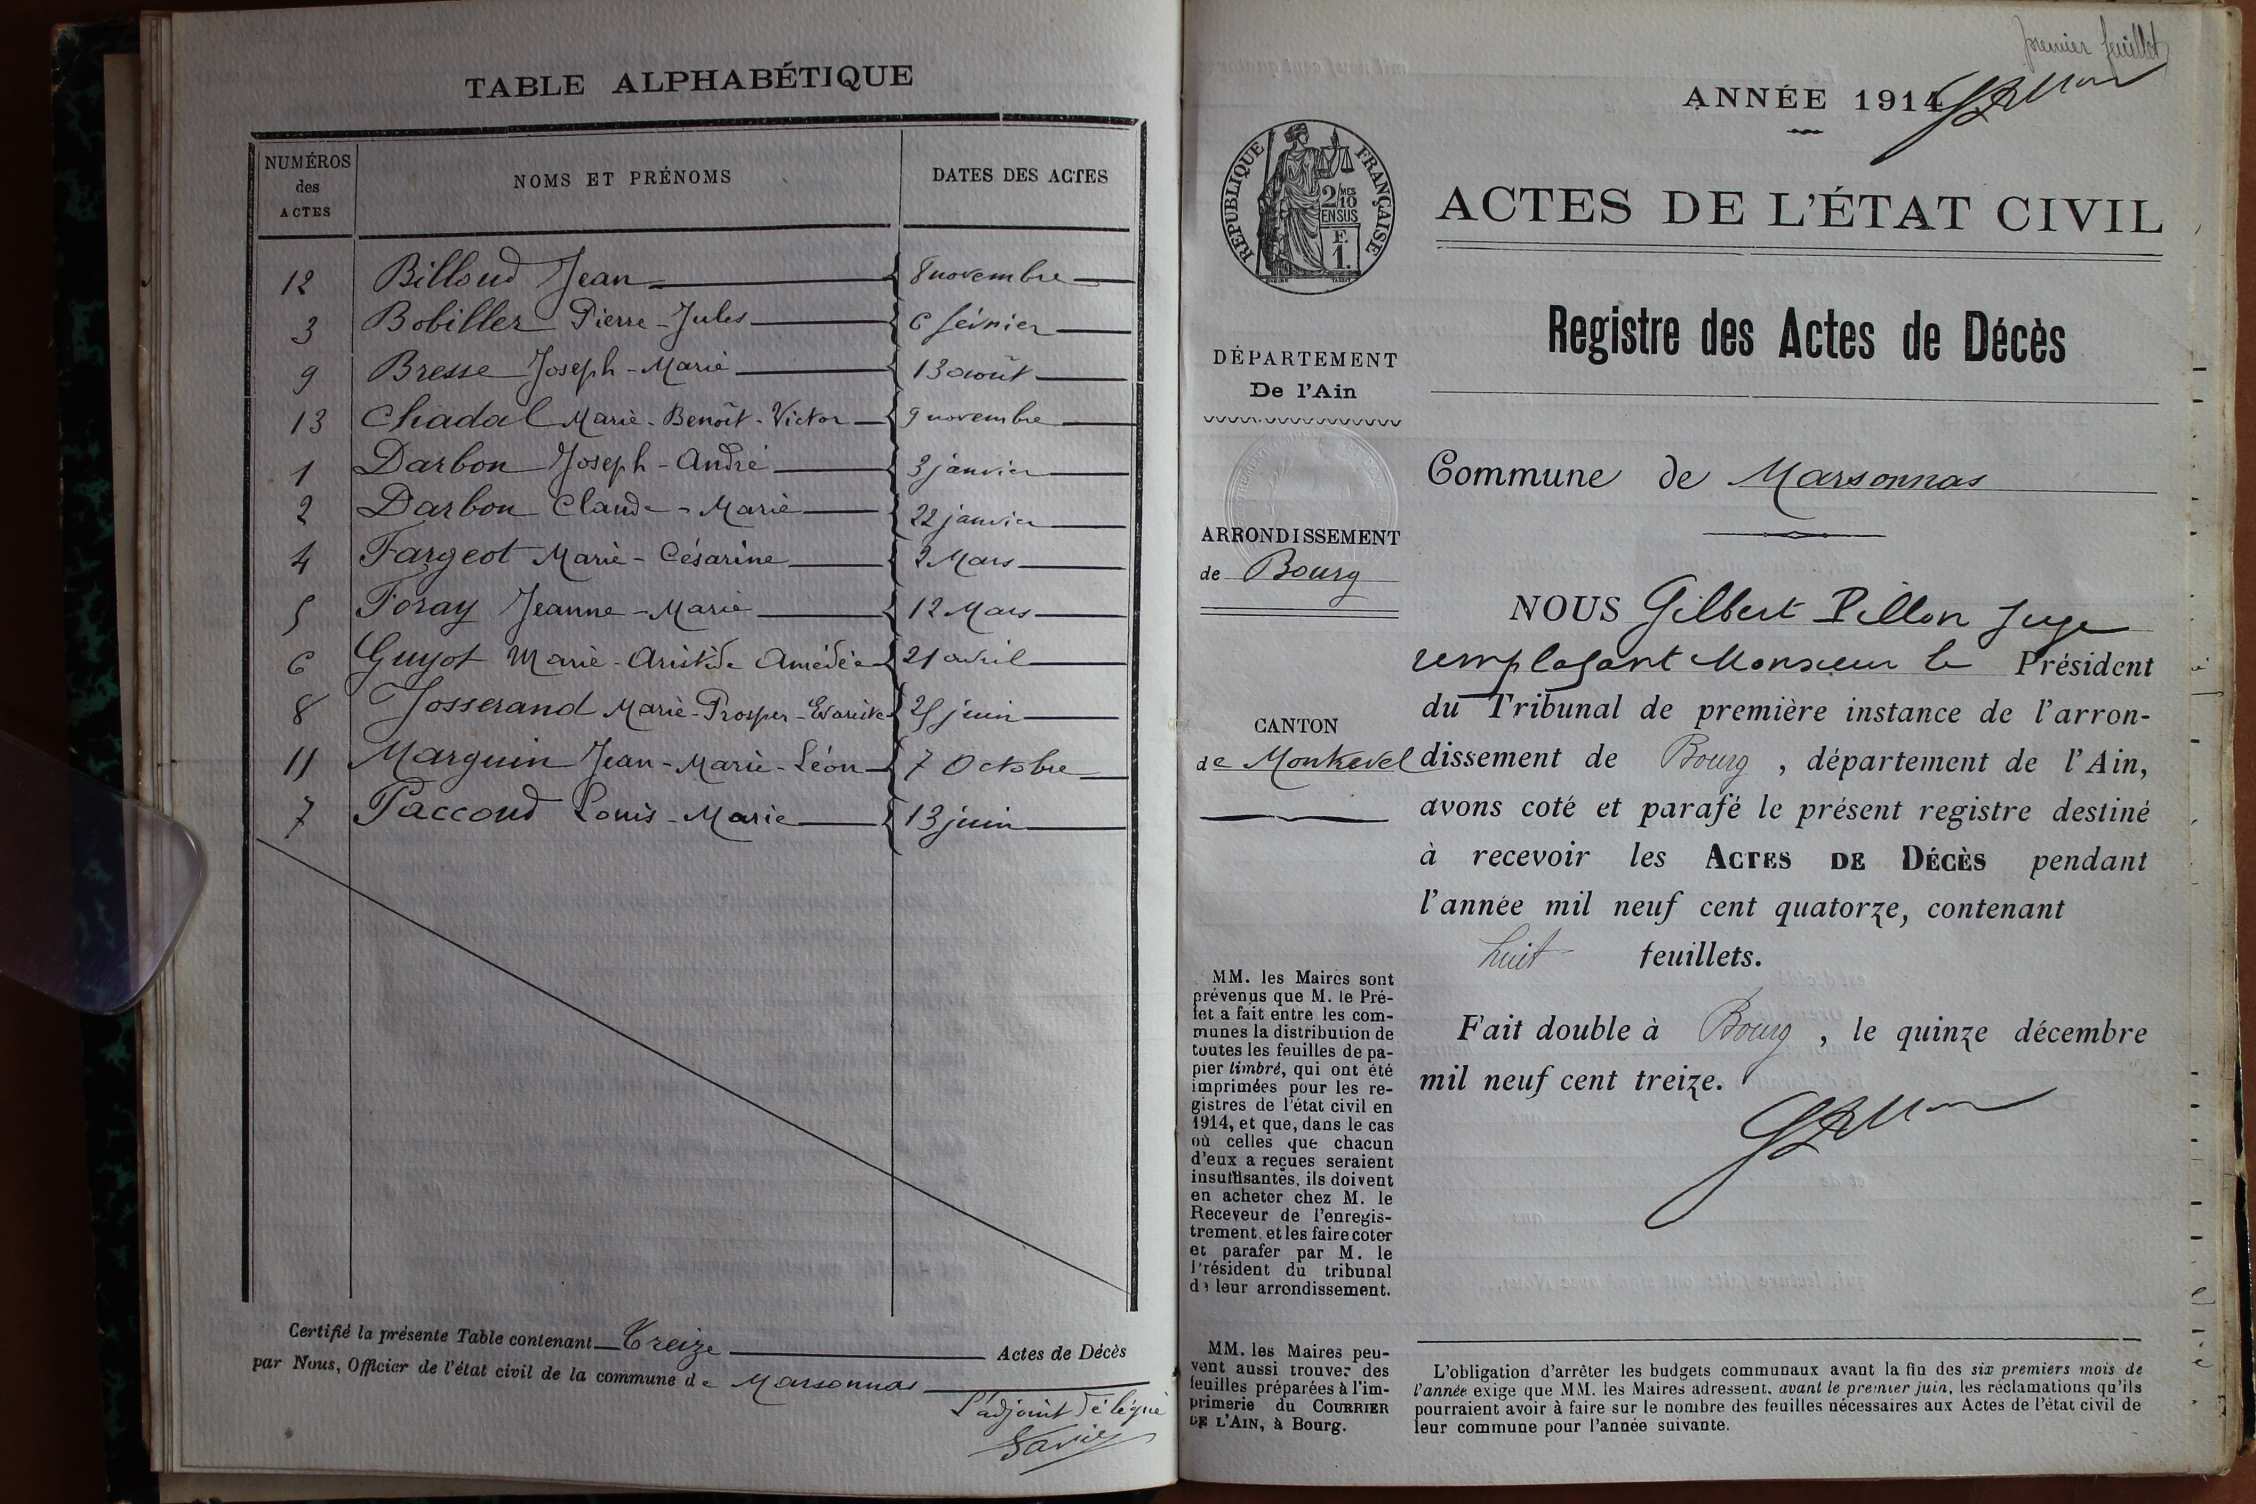 TABLE ALPHABÉTIQUE
NUMÉROS des ACTES
NOMS ET PRÉNOMS
DATES DES ACTES
12 Billoud Jean 8 novembre
3 Bobiller Pierre-Jules 6 février
9 Bresse Joseph-Marie 13 août
13 Chadal Marie-Benoît-Victor 9 novembre
1 Darbon Joseph-André 3 janvier
2 Darbon Claude-Marie 22 janvier
4 Fargeot Marie-Césarine 2 Mars
5 Foray Jeanne-Marie 12 Mars
6 Guyot Marie-Aristide Amédée 21 avril
8 Josserand Marie-Prosper-Evariste 25 juin
11 Marguin Jean-Marie-Léon 7 Octobre
7 Paccoud Louis-Marie 13 juin
Certifié la présente Table contenant Treize Actes de Décès
par Nous, Officier de l'état civil de la commune de Marsonnas
L'adjoint délégué
premier feuillet
ANNÉE 1914
RÉPUBLIQUE FRANÇAISE
2/10 MES
EN SUS
F.
1.
ACTES DE L'ÉTAT CIVIL
Registre des Actes de Décès
DÉPARTEMENT
De l'Ain
ARRONDISSEMENT
de Bourg
CANTON
de Montrevel
MM. les Maires sont
prévenus que M. le Pré-
fet a fait entre les com-
munes la distribution de
toutes les feuilles de pa-
pier timbré, qui ont été
imprimées pour les re-
gistres de l'état civil en
1914, et que, dans le cas
où celles que chacun
d'eux a reçues seraient
insuffisantes, ils doivent
en acheter chez M. le
Receveur de l'enregis-
trement, et les faire coter
et parafer par M. le
Président du tribunal
de leur arrondissement.
MM. les Maires peu-
vent aussi trouver des
feuilles préparées à l'im-
primerie du COURRIER
DE L'AIN, à Bourg.
Commune de Marsonnas
NOUS Gilbert Pillon Juge
remplaçant Monsieur le Président
du Tribunal de première instance de l'arron-
dissement de Bourg, département de l'Ain,
avons coté et parafé le présent registre destiné
à recevoir les ACTES DE DÉCÈS pendant
l'année mil neuf cent quatorze, contenant
huit feuillets.
Fait double à Bourg, le quinze décembre
mil neuf cent treize.
L'obligation d'arrêter les budgets communaux avant la fin des six premiers mois de
l'année exige que MM. les Maires adressent, avant le premier juin, les réclamations qu'ils
pourraient avoir à faire sur le nombre des feuilles nécessaires aux Actes de l'état civil de
leur commune pour l'année suivante.